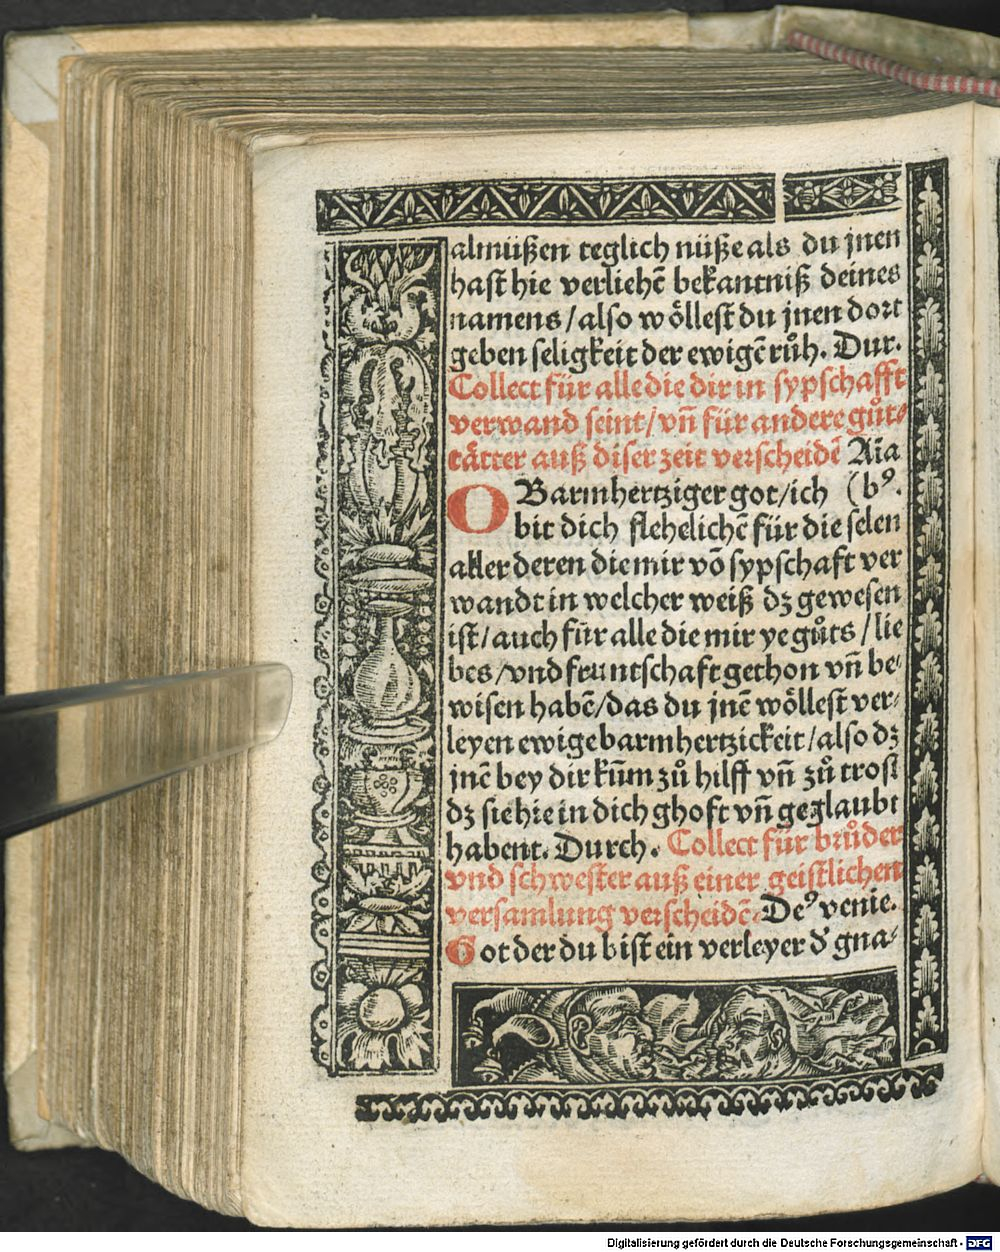 almüßen teglich nüße als du jnen
hast hie verliehē bekantniß deines
namens/also wo̊llest du jnen dort
geben seligkeit der ewigē růh. Dur.
Collect für alle die dir in sypschafft
verwand seint/vn̄ für andere gůt⸗
tåtter auß diser zeit verscheidē Aīa
O Barmhertziger got/ich (bꝰ.
bit dich flehelichē für die selen
aller deren die mir vō sypschaft ver
wandt in welcher weiß dz gewesen
ist/auch für alle die mir ye gůts/lie
bes/vnd fruntschaft gethon vn̄ be⸗
wisen habē/das du jnē wo̊llest ver⸗
leyen ewige barmhertzickeit/also dz
jnē bey dir kūm zů hilff vn̄ zů trost
dz sie hie in dich ghoft vn̄ geglaubt
habent. Durch. Collect für brůder
vnd schwester auß einer geistlichen
versamlung verscheidē. Deꝰ venie.
Got der du bist ein verleyer d̓ gna⸗
Digitalisierung gefördert durch die Deutsche Forschungsgemeinschaft - DFG